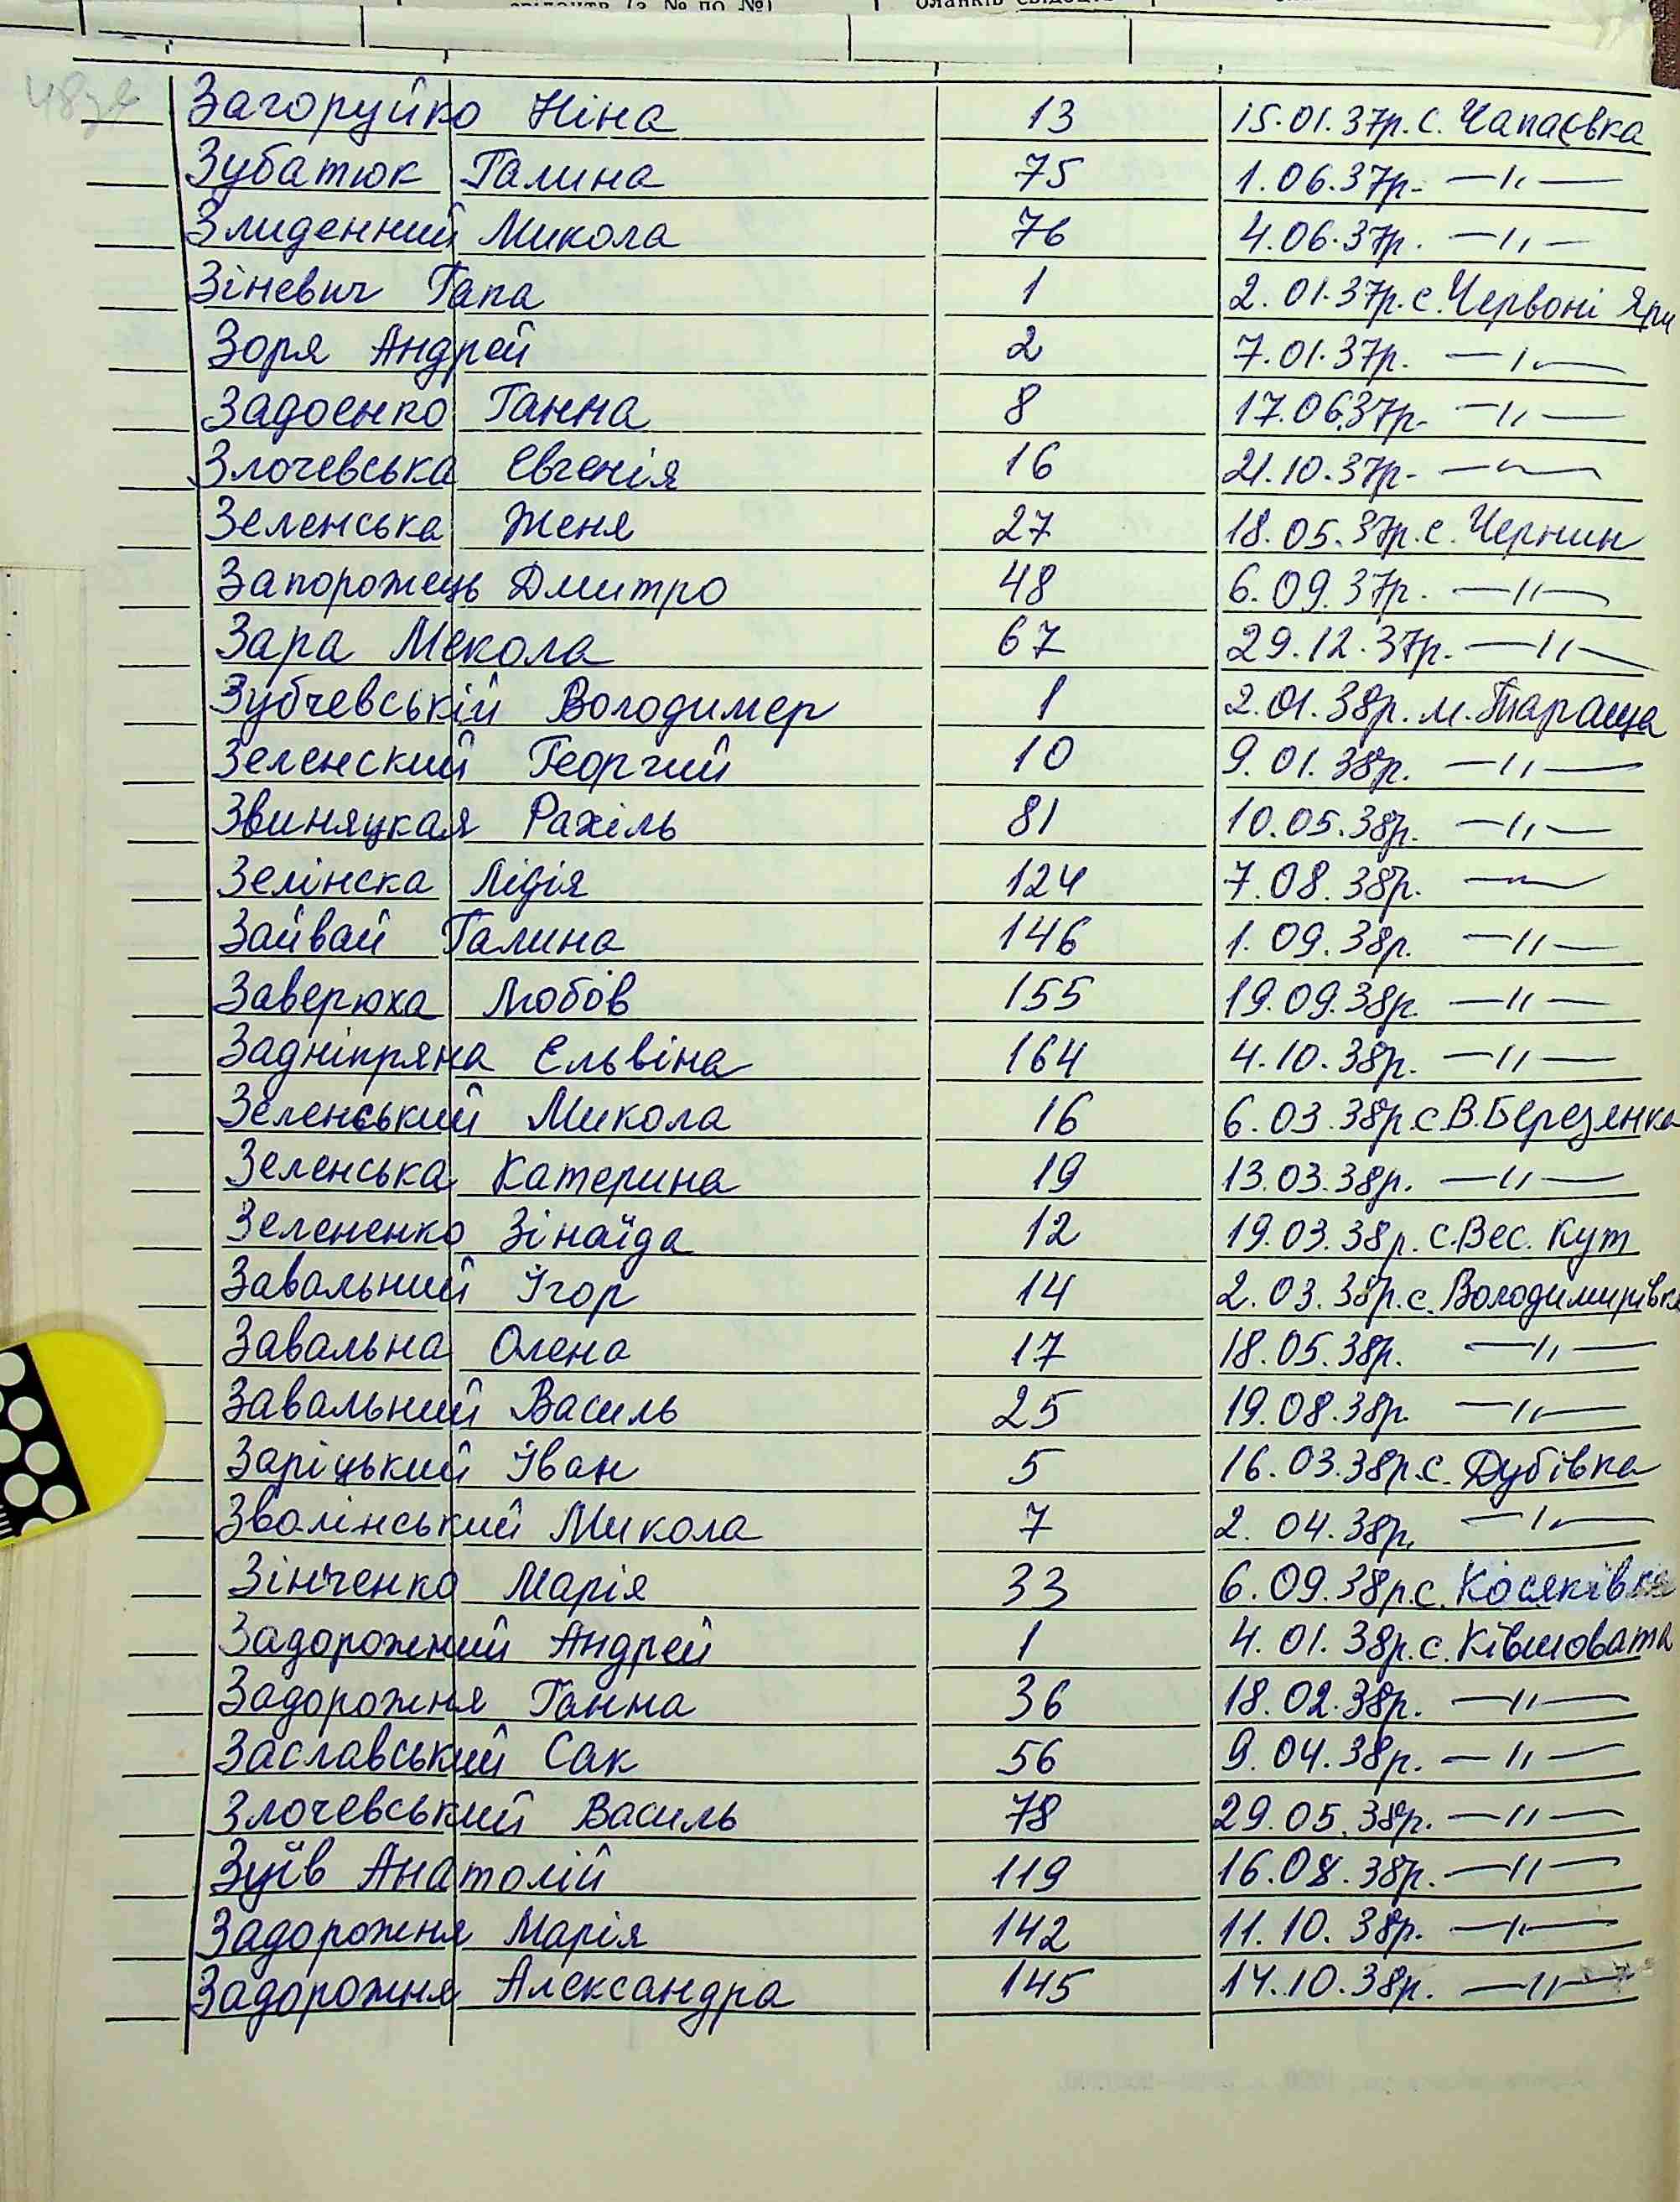 Загоруйко Ніна 13 15.01.37р. с. Чапаєвка
Зубатюк Галина 75 1.06.37р. —〃—
Злиденний Микола 76 4.06.37р. —〃—
Зіневич Гапа 1 2.01.37р. с. Червоні Яри
Зоря Андрей 2 7.01.37р. —〃—
Задоєнко Ганна 8 17.06.37р. —〃—
Злочевська Євгенія 16 21.10.37р. —〃—
Зеленська Женя 27 18.05.37р. с. Чернин
Запорожець Дмитро 48 6.09.37р. —〃—
Зара Мекола 67 29.12.37р. —〃—
Зубчевській Володимер 1 2.01.38р. м. Тараща
Зеленский Георгий 10 9.01.38р. —〃—
Звиняцкая Рахіль 81 10.05.38р. —〃—
Зелінска Лідія 124 7.08.38р. —〃—
Зайвай Галина 146 1.09.38р. —〃—
Заверюха Любов 155 19.09.38р. —〃—
Задніпряна Ельвіна 164 4.10.38р. —〃—
Зеленський Микола 16 6.03.38р. с. В. Березянка
Зеленська Катерина 19 13.03.38р. —〃—
Зелененко Зінаїда 12 19.03.38р. с. Вес. Кут
Завальний Ігор 14 2.03.38р. с. Володимирівка
Завальна Олена 17 18.05.38р. —〃—
Завальний Василь 25 19.08.38р. —〃—
Заріцький Іван 5 16.03.38р. с. Дубівка
Зволінський Микола 7 2.04.38р. —〃—
Зінченко Марія 33 6.09.38р. с. Косяківка
Задорожний Андрей 1 4.01.38р. с. Ківшовата
Задорожня Ганна 36 18.02.38р. —〃—
Заславський Сак 56 9.04.38р. —〃—
Злочевський Василь 78 29.05.38р. —〃—
Зуїв Анатолій 119 16.08.38р. —〃—
Задорожня Марія 142 11.10.38р. —〃—
Задорожня Александра 145 14.10.38р. —〃—